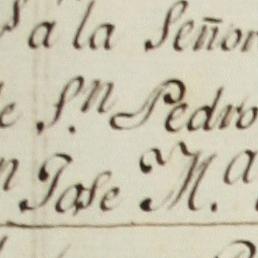 a la Señor
de S.n Pedro
n Jose M.a